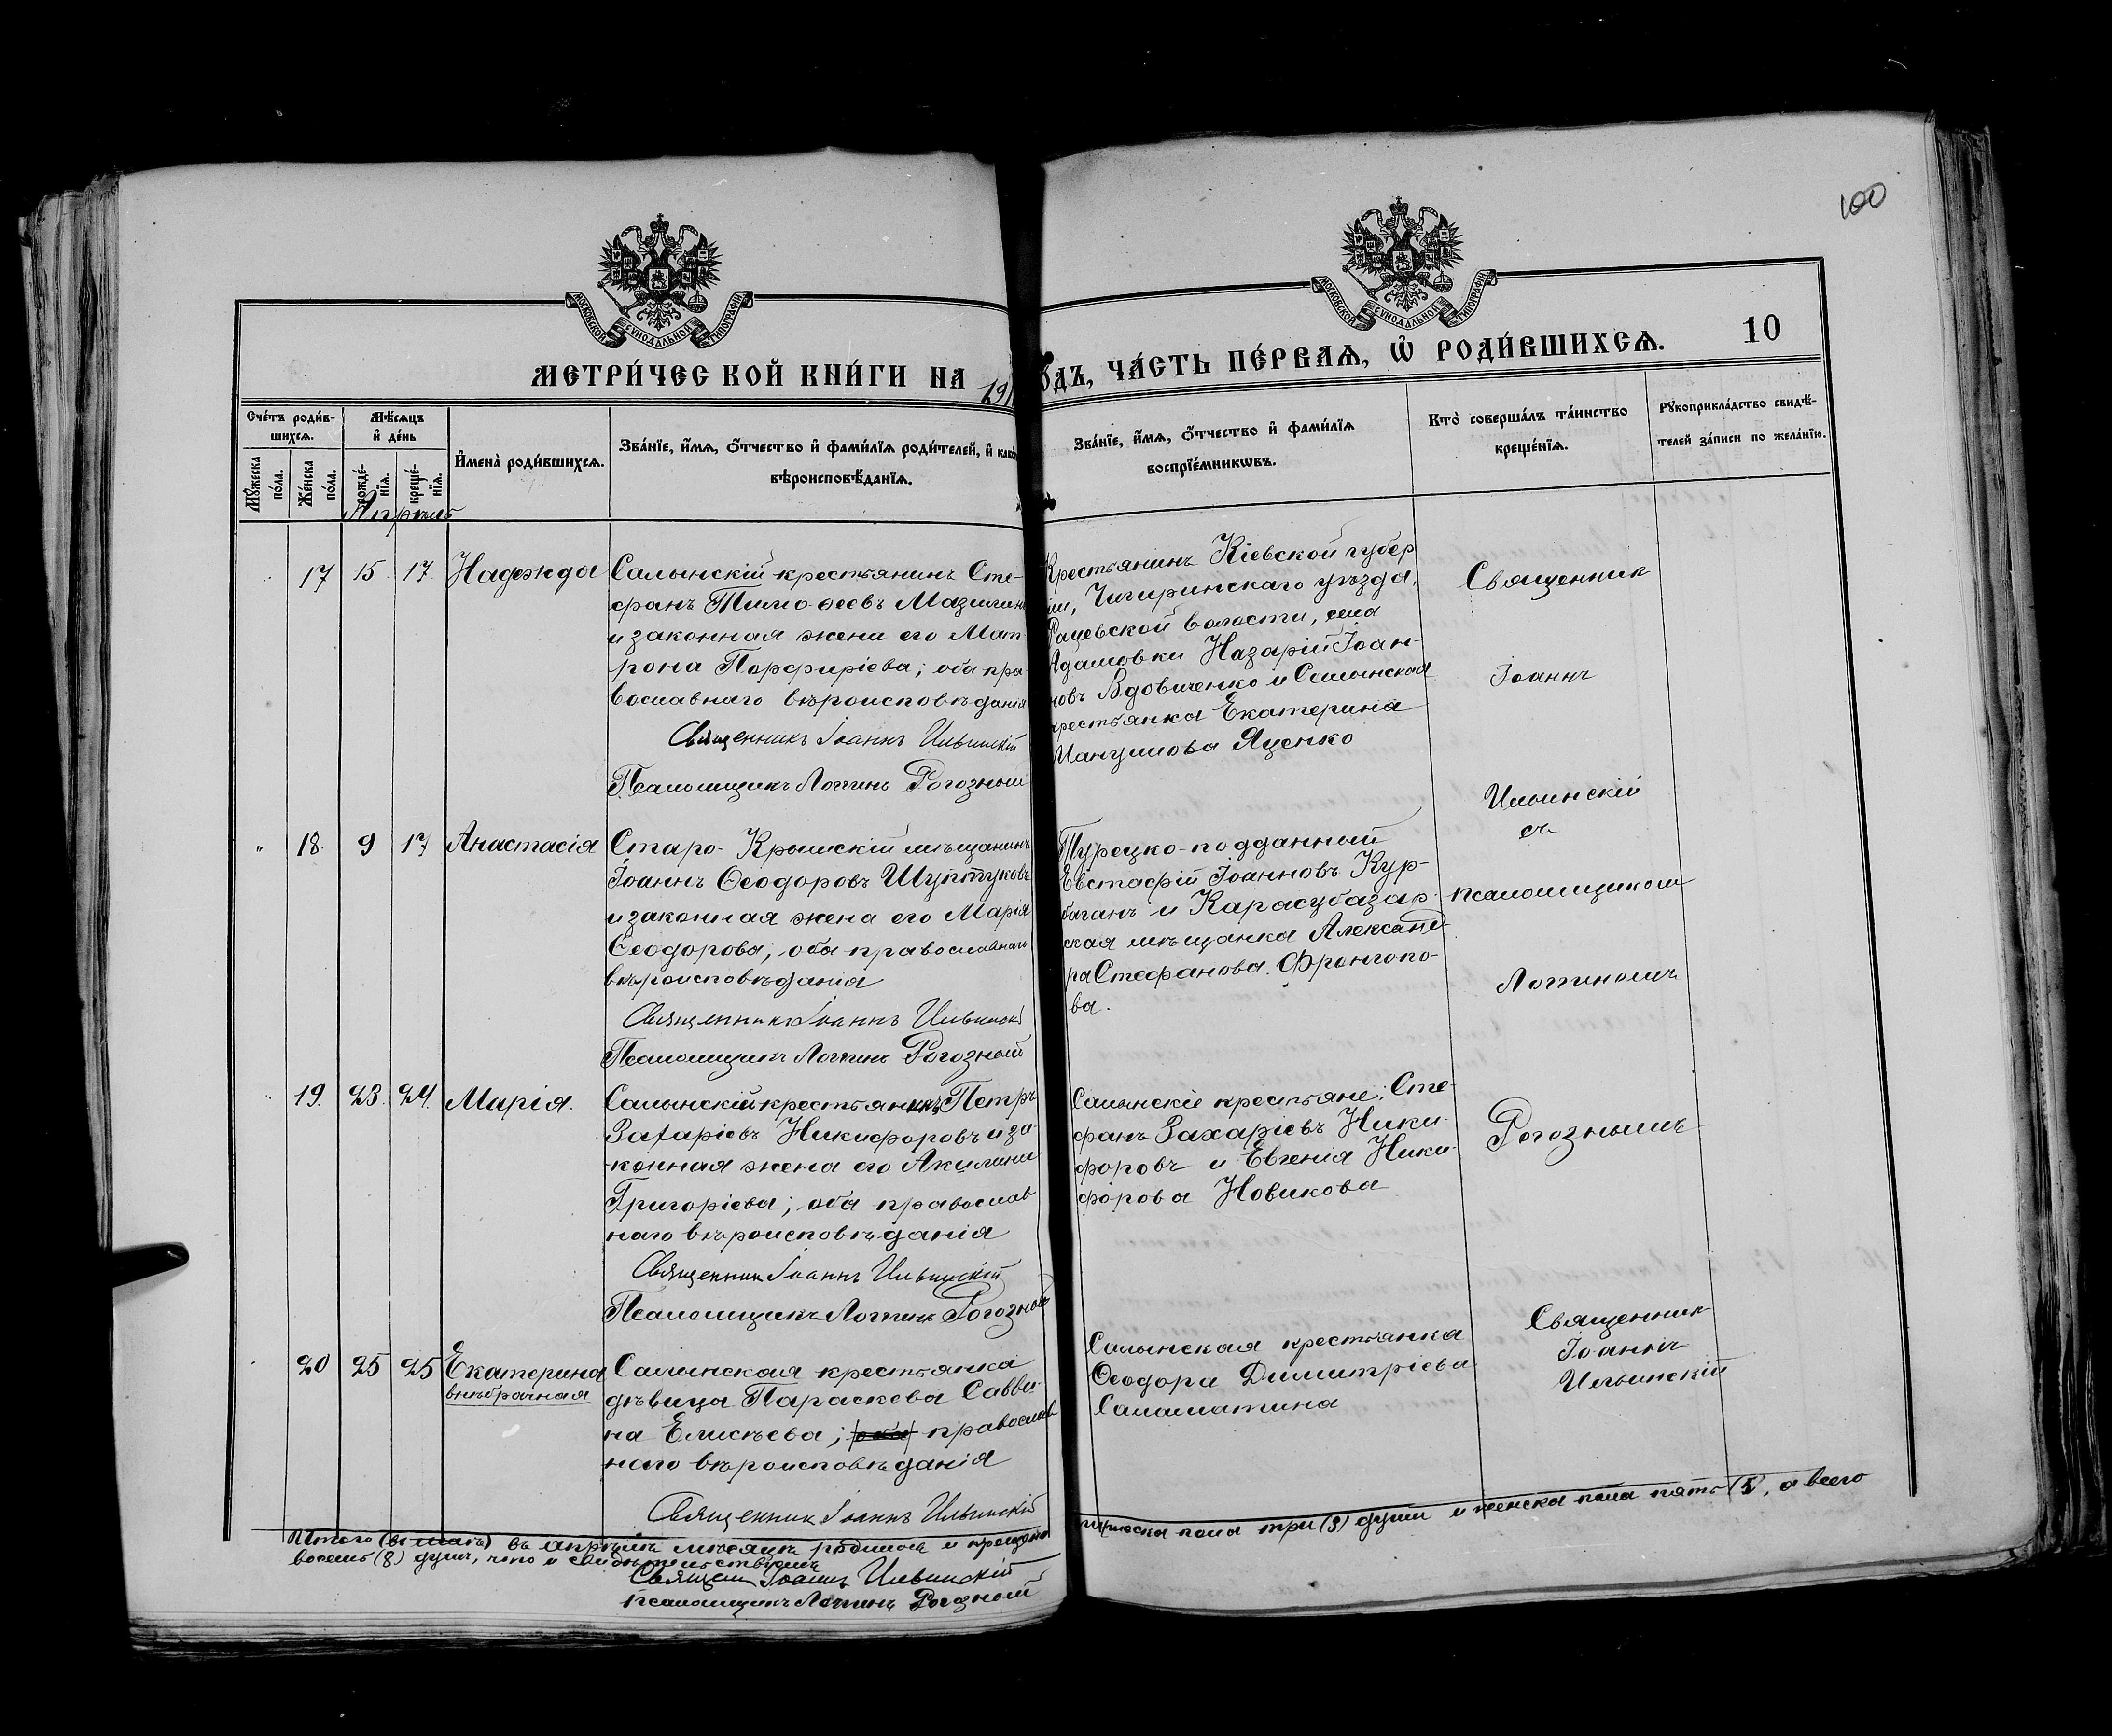 100
МОСКОВСКОЙ СѴНОДАЛЬНОЙ ТИПОГРАФІИ
МОСКОВСКОЙ СѴНОДАЛЬНОЙ ТИПОГРАФІИ
МЕТРИ́ЧЕСКОЙ КНИ́ГИ НА 191
ОДЪ, ЧА́СТЬ ПЕ́РВАѦ, Ѡ РОДИ́ВШИХСѦ.
10
Сче́тъ роди́в-
шихсѧ.
Мѣ́сѧцъ
и҆ де́нь
Мꙋ́жеска
по́ла.
Же́нска
по́ла.
рожде́-
нїѧ.
креще́-
нїѧ.
И҆мена̀ роди́вшихсѧ.
Зва́нїе, и҆́мѧ, ѻ҆́тчество и҆ фами́лїѧ роди́телей, и҆
вѣроисповѣ́данїѧ.
Зва́нїе, и҆́мѧ, ѻ҆́тчество и҆ фами́лїѧ
воспрїе́мникѡвъ.
Кто̀ соверша́лъ та́инство
креще́нїѧ.
Рꙋкоприкла́дство свидѣ́-
телей за́писи по жела́нїю.
Апрѣль
17 15 17 Надежда
Салынскій крестьянинъ Сте-
фанъ Тимоѳеевъ Мазилин
и законная жена его Мат-
рона Порфиріева; оба пра-
вославнаго вѣроисповѣданія
Священникъ Іоаннъ Ильинскій
Псаломщикъ Логгинъ Рогозный
Крестьянинъ Кіевской губер
ніи, Чигиринскаго уѣзда,
Рацевской волости, села
Адамовки Назарій Іоан-
новъ Вдовиченко и Салынская
крестьянка Екатерина
Мануилова Яценко
Священник
Іоаннъ
Ильинскій
съ
псаломщикомъ
Логгиномъ
Рогознымъ
" 18 9 17 Анастасія
Старо-Крымскій мѣщанинъ
Іоаннъ Ѳеодоровъ Шуптуковъ
и законная жена его Марія
Ѳеодорова; оба православнаго
вѣроисповѣданія
Священникъ Іоаннъ Ильинскій
Псаломщикъ Логгинъ Рогозный
Турецко-подданный
Евстафій Іоанновъ Кур-
баганъ и Карасубазар-
ская мѣщанка Александ-
ра Стефанова Франгопо-
ва.
19. 23. 24. Марія.
Салынскій крестьянинъ Петръ
Захаріевъ Никифоровъ и за-
конная жена его Акилина
Григоріева; оба православ
наго вѣроисповѣданія
Священник Іоаннъ Ильинскій
Псаломщикъ Логгинъ Рогозный
Салынскіе крестьяне: Сте-
фанъ Захаріевъ Ники-
форовъ и Евгенія Ники-
форова Новикова
20 25 25 Екатерина
внѣбрачная
Салынская крестьянка
дѣвица Параскева Савви-
на Елисѣева; оба православ
наго вѣроисповѣданія
Священник Іоаннъ Ильинскій
Салынская крестьянка
Ѳеодора Димитріева
Саламатина
Священник
Іоаннъ
Ильинскій
Итого въ апрѣлѣ мѣсяцѣ родилось и крещено
мужеска пола три (3) души и женска пола пять (5), а всего
восемь (8) душъ, что и свидѣтельствуемъ
Священ Іоаннъ Ильинскій
псаломщикъ Логгинъ Рогозный